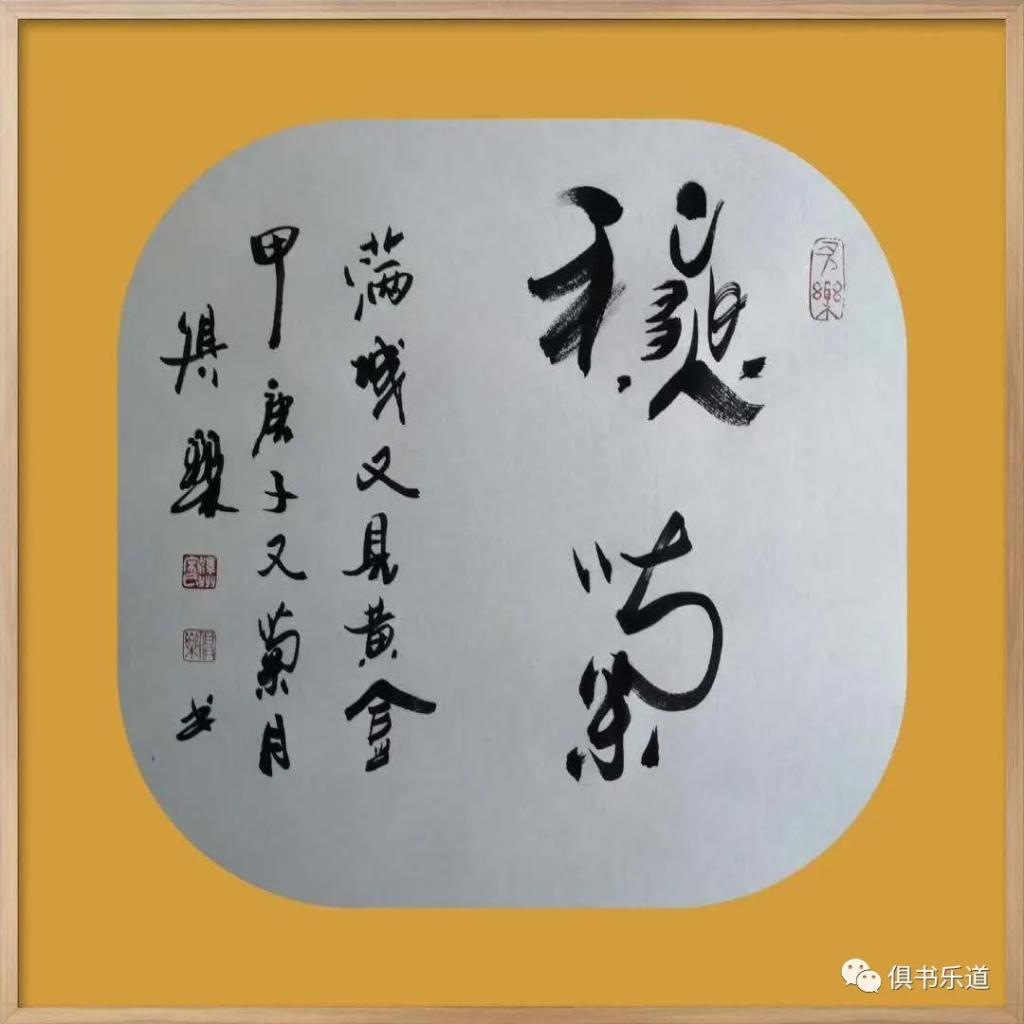 穐菊
满城又見黄金
甲 庚子又菊月
俱樂 书
俱书乐道